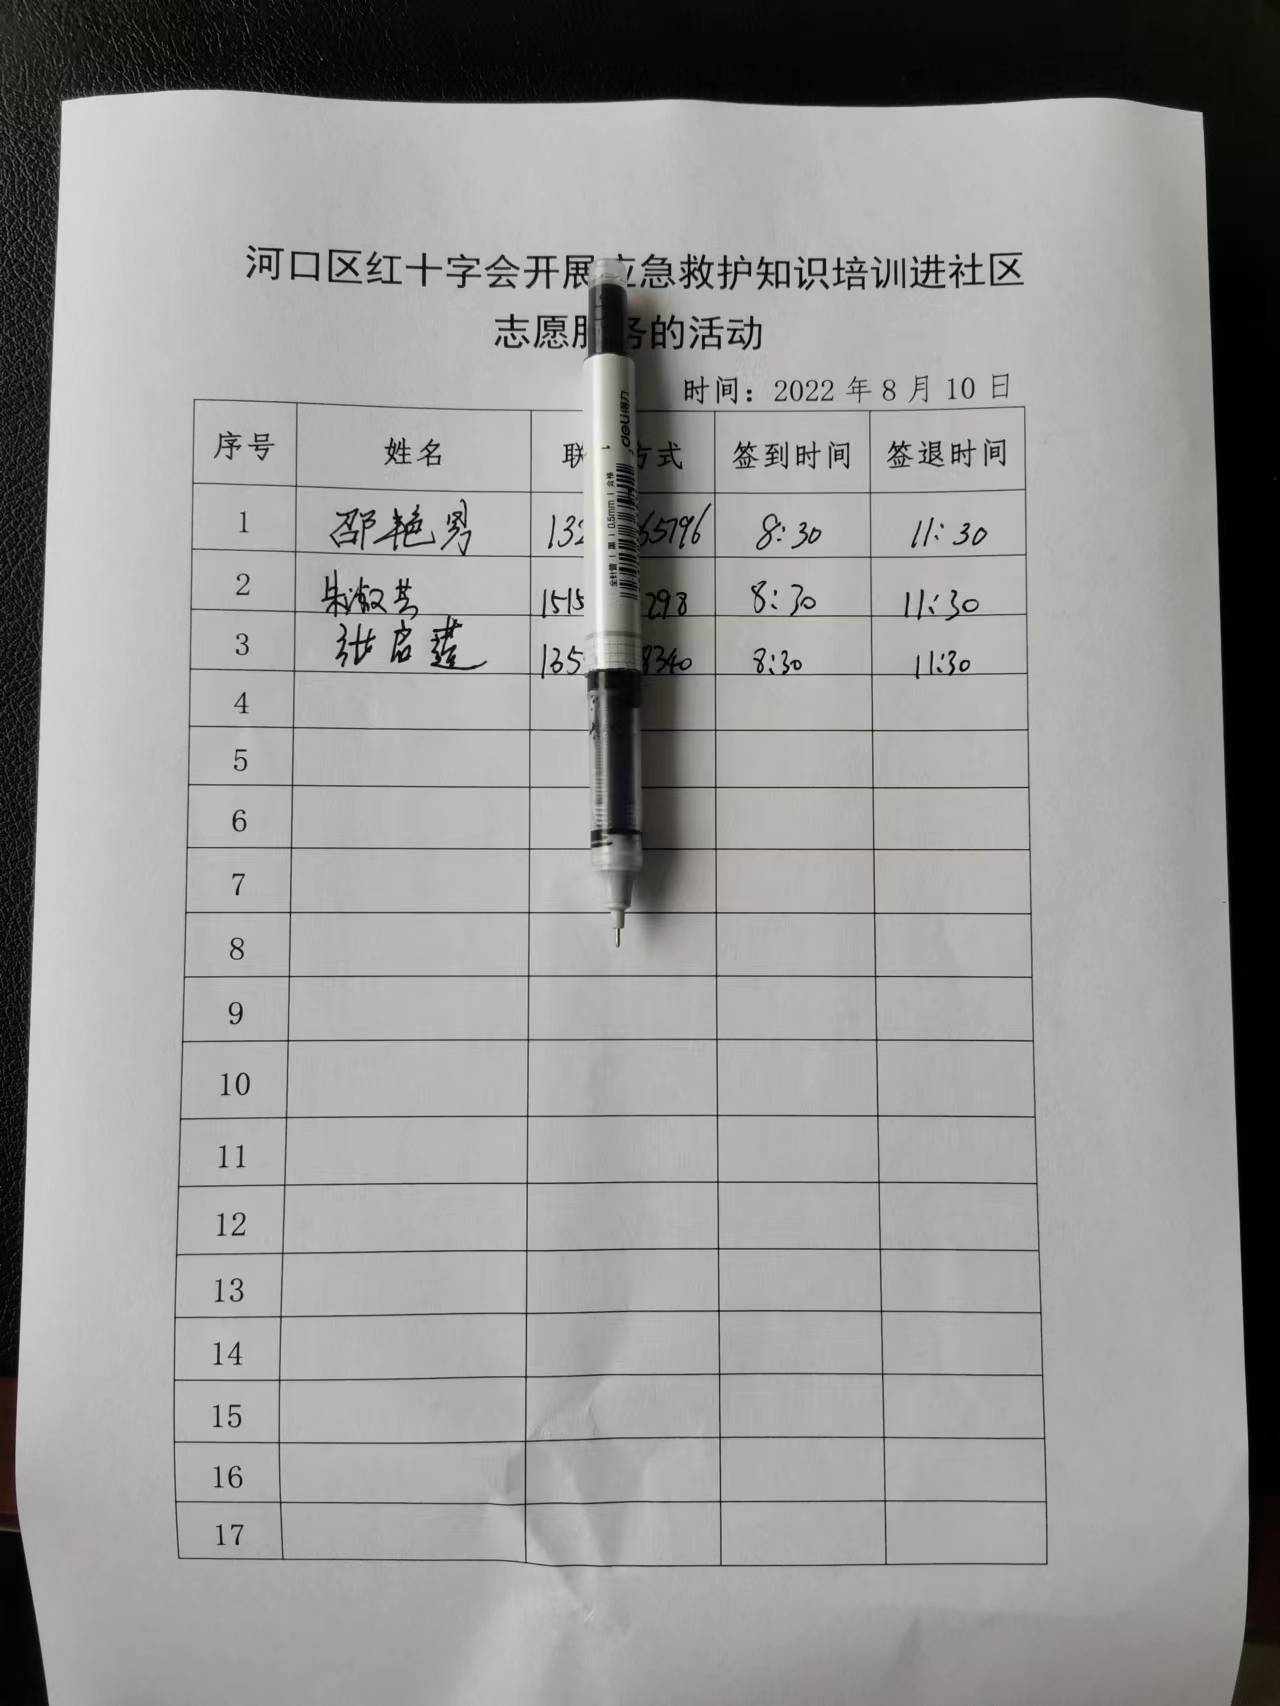 河口区红十字会开展应急救护知识培训进社区
志愿服务的活动
时间：2022 年 8 月 10 日
序号 姓名 联 方式 签到时间 签退时间
1 邵艳男 132 65796 8:30 11:30
2 朱淑芸 1515 298 8:30 11:30
3 张启莲 135 8340 8:30 11:30
4
5
6
7
8
9
10
11
12
13
14
15
16
17
deli得力
全针管 | 黑 | 0.5mm | 合格